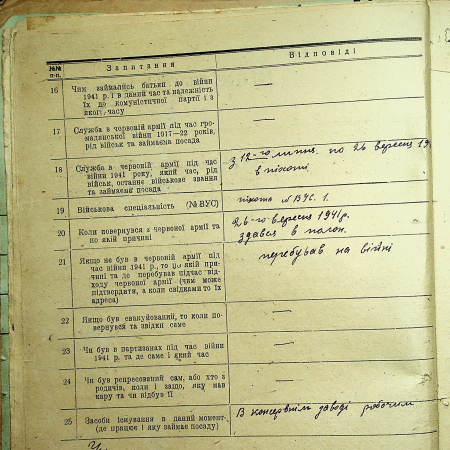 №№ п-п.
Запитання
Відповіді
16
Чим займались батьки до війни
1941 р. і в даний час та належність
їх до комуністичної партії і з
якого часу
—
17
Служба в червоній армії під час гро-
мадянської війни 1917—22 років,
рід військ та займаєма посада
—
18
Служба в червоній армії під час
війни 1941 року, який час, рід
військ, останнє військове звання
та займаєма посада
з 12-го липня по 26 вересня 19
в піхоті
19
Військова спеціальність (№ ВУС)
піхота № ВУС. 1.
20
Коли повернувся з червоної армії та
по якій причині
26-го вересня 1941 р.
здався в полон.
21
Якщо не був в червоній армії під
час війни 1941 р., то по якій при-
чині та де перебував підчас від-
ходу червоної армії (чим може
підтвердити, а коли свідками то їх
адреса)
перебував на війні
22
Якщо був евакуйований, то коли по-
вернувся та звідки саме
—
23
Чи був в партизанах під час війни
1941 р. та де саме і який час
—
24
Чи був репресований сам, або хто з
родичів, коли і защо, яку мав
кару та чи відбув її
—
25
Засоби існування в даний момент
(де працює і яку займає посаду)
В консервнім заводі робочим